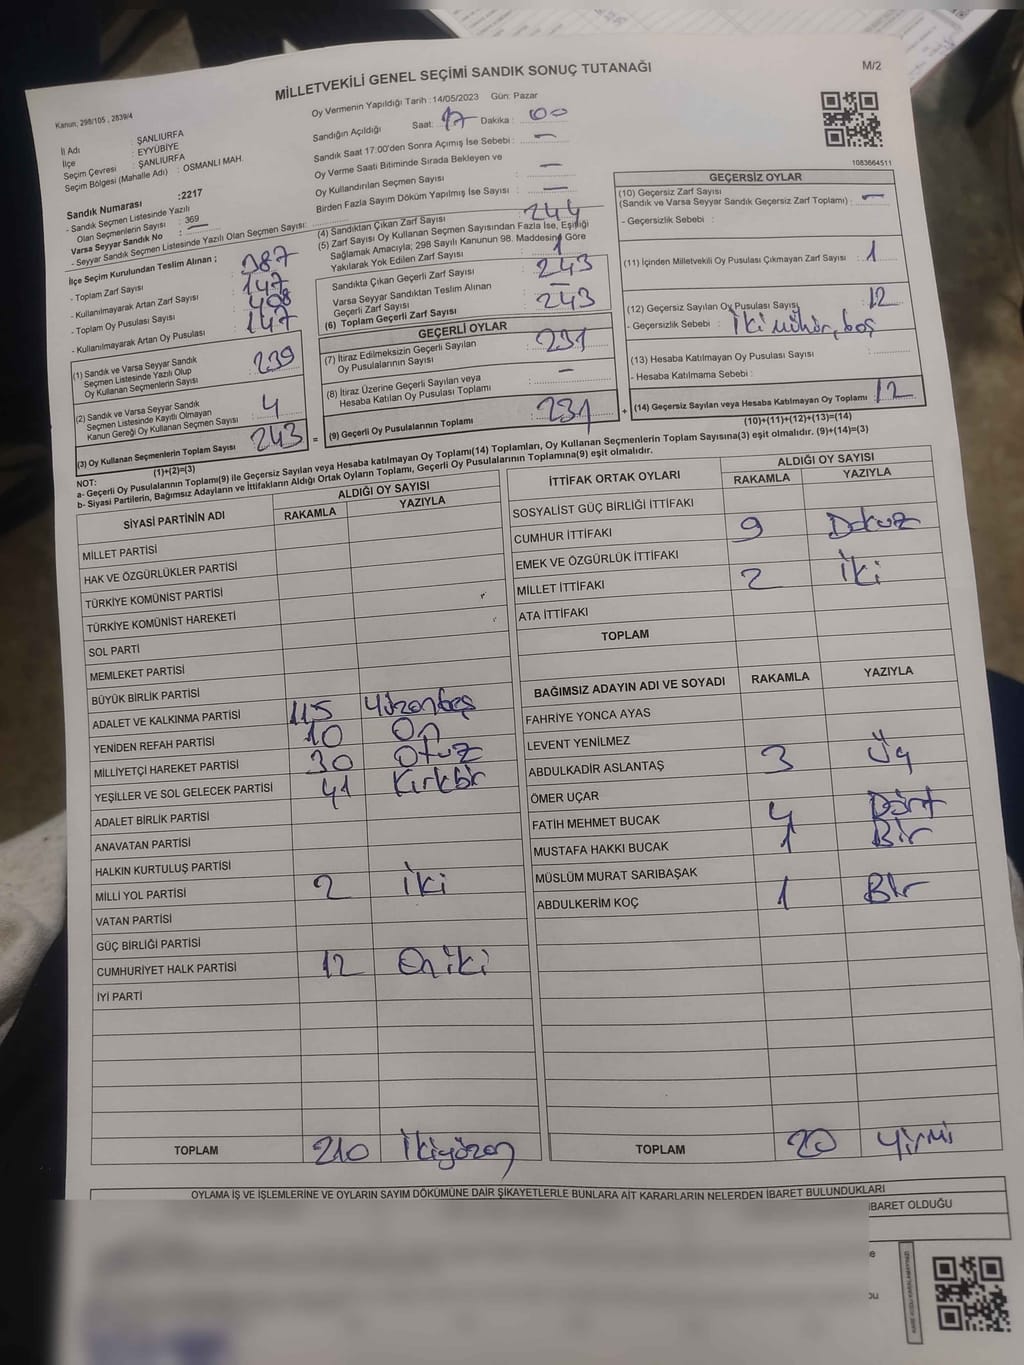 MİLLETVEKİLİ GENEL SEÇİMİ SANDIK SONUÇ TUTANAĞI
M/2
Kanun, 298/105 , 2839/4
Oy Vermenin Yapıldığı Tarih :14/05/2023 Gün: Pazar
Sandığın Açıldığı Saat: 17 Dakika : 00
Sandık Saat 17:00'den Sonra Açımış İse Sebebi : —
Oy Verme Saati Bitiminde Sırada Bekleyen ve
Oy Kullandırılan Seçmen Sayısı : —
Birden Fazla Sayım Döküm Yapılmış İse Sayısı : —
İl Adı : ŞANLIURFA
İlçe : EYYÜBİYE
Seçim Çevresi : ŞANLIURFA
Seçim Bölgesi (Mahalle Adı) : OSMANLI MAH.
1083664511
Sandık Numarası :2217
- Sandık Seçmen Listesinde Yazılı
Olan Seçmenlerin Sayısı : 369
Varsa Seyyar Sandık No : —
- Seyyar Sandık Seçmen Listesinde Yazılı Olan Seçmen Sayısı:
İlçe Seçim Kurulundan Teslim Alınan ;
- Toplam Zarf Sayısı : 387
- Kullanılmayarak Artan Zarf Sayısı : 147
- Toplam Oy Pusulası Sayısı : 408
- Kullanılmayarak Artan Oy Pusulası : 147
(1) Sandık ve Varsa Seyyar Sandık
Seçmen Listesinde Yazılı Olup
Oy Kullanan Seçmenlerin Sayısı 239
(2) Sandık ve Varsa Seyyar Sandık
Seçmen Listesinde Kayıtlı Olmayan
Kanun Gereği Oy Kullanan Seçmen Sayısı 4
(3) Oy Kullanan Seçmenlerin Toplam Sayısı 243
(1)+(2)=(3)
(4) Sandıktan Çıkan Zarf Sayısı : 244
(5) Zarf Sayısı Oy Kullanan Seçmen Sayısından Fazla İse, Eşitliği
Sağlamak Amacıyla; 298 Sayılı Kanunun 98. Maddesine Göre
Yakılarak Yok Edilen Zarf Sayısı : 1
Sandıkta Çıkan Geçerli Zarf Sayısı : 243
Varsa Seyyar Sandıktan Teslim Alınan
Geçerli Zarf Sayısı : —
(6) Toplam Geçerli Zarf Sayısı : 243
GEÇERLİ OYLAR
(7) İtiraz Edilmeksizin Geçerli Sayılan
Oy Pusulalarının Sayısı : 231
(8) İtiraz Üzerine Geçerli Sayılan veya
Hesaba Katılan Oy Pusulası Toplamı : —
= (9) Geçerli Oy Pusulalarının Toplamı : 231 +
GEÇERSİZ OYLAR
(10) Geçersiz Zarf Sayısı
(Sandık ve Varsa Seyyar Sandık Geçersiz Zarf Toplamı) : —
- Geçersizlik Sebebi :
(11) İçinden Milletvekili Oy Pusulası Çıkmayan Zarf Sayısı : 1
(12) Geçersiz Sayılan Oy Pusulası Sayısı : 12
- Geçersizlik Sebebi : İki mühür, boş
(13) Hesaba Katılmayan Oy Pusulası Sayısı :
- Hesaba Katılmama Sebebi :
(14) Geçersiz Sayılan veya Hesaba Katılmayan Oy Toplamı : 12
(10)+(11)+(12)+(13)=(14)
NOT:
a- Geçerli Oy Pusulalarının Toplamı(9) ile Geçersiz Sayılan veya Hesaba katılmayan Oy Toplamı(14) Toplamları, Oy Kullanan Seçmenlerin Toplam Sayısına(3) eşit olmalıdır. (9)+(14)=(3)
b- Siyasi Partilerin, Bağımsız Adayların ve İttifakların Aldığı Ortak Oyların Toplamı, Geçerli Oy Pusulalarının Toplamına(9) eşit olmalıdır.
SİYASİ PARTİNİN ADI ALDIĞI OY SAYISI
RAKAMLA YAZIYLA
MİLLET PARTİSİ
HAK VE ÖZGÜRLÜKLER PARTİSİ
TÜRKİYE KOMÜNİST PARTİSİ
TÜRKİYE KOMÜNİST HAREKETİ
SOL PARTİ
MEMLEKET PARTİSİ
BÜYÜK BİRLİK PARTİSİ
ADALET VE KALKINMA PARTİSİ 115 Yüzonbeş
YENİDEN REFAH PARTİSİ 10 On
MİLLİYETÇİ HAREKET PARTİSİ 30 Otuz
YEŞİLLER VE SOL GELECEK PARTİSİ 41 Kırkbir
ADALET BİRLİK PARTİSİ
ANAVATAN PARTİSİ
HALKIN KURTULUŞ PARTİSİ
MİLLİ YOL PARTİSİ 2 İki
VATAN PARTİSİ
GÜÇ BİRLİĞİ PARTİSİ
CUMHURİYET HALK PARTİSİ 12 Oniki
İYİ PARTİ
TOPLAM 210 İkiyüzon
İTTİFAK ORTAK OYLARI ALDIĞI OY SAYISI
RAKAMLA YAZIYLA
SOSYALİST GÜÇ BİRLİĞİ İTTİFAKI
CUMHUR İTTİFAKI 9 Dokuz
EMEK VE ÖZGÜRLÜK İTTİFAKI
MİLLET İTTİFAKI 2 İki
ATA İTTİFAKI
TOPLAM
BAĞIMSIZ ADAYIN ADI VE SOYADI RAKAMLA YAZIYLA
FAHRİYE YONCA AYAS
LEVENT YENİLMEZ
ABDULKADİR ASLANTAŞ 3 Üç
ÖMER UÇAR
FATİH MEHMET BUCAK 4 Dört
MUSTAFA HAKKI BUCAK 1 Bir
MÜSLÜM MURAT SARIBAŞAK
ABDULKERİM KOÇ 1 Bir
TOPLAM 20 Yirmi
OYLAMA İŞ VE İŞLEMLERİNE VE OYLARIN SAYIM DÖKÜMÜNE DAİR ŞİKAYETLERLE BUNLARA AİT KARARLARIN NELERDEN İBARET BULUNDUKLARI
İBARET OLDUĞU